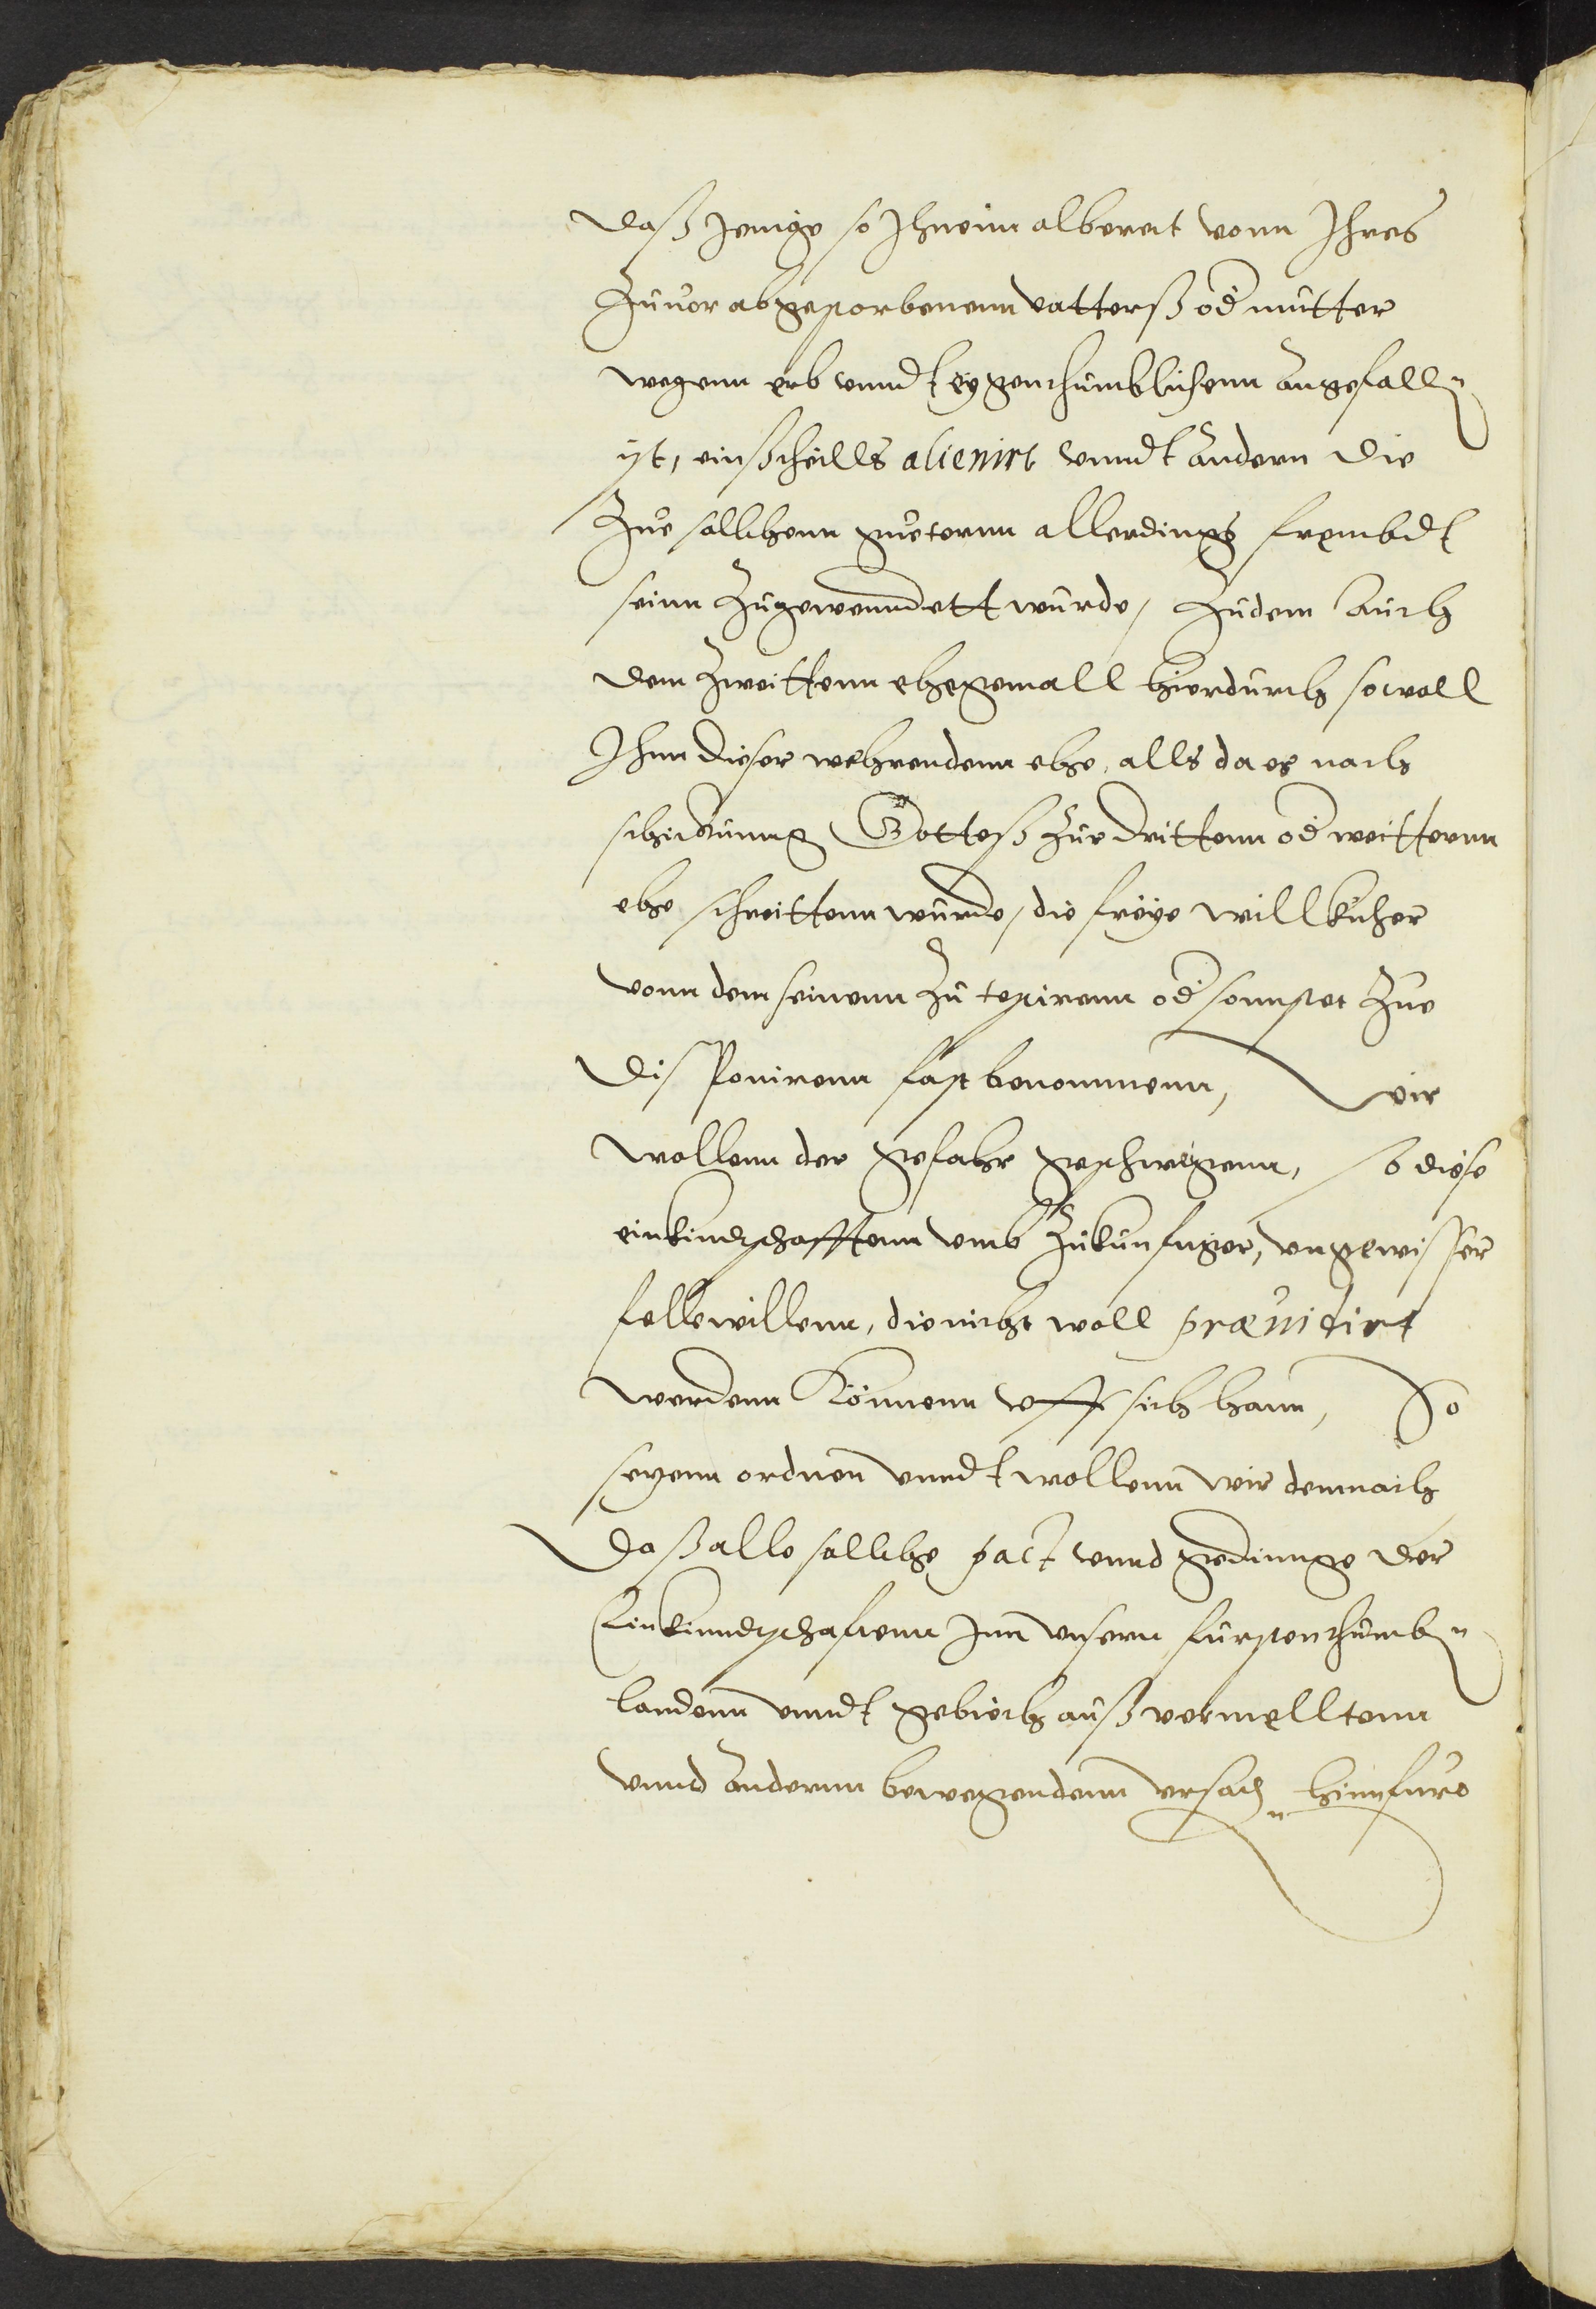 daß jenige so Ihnenn albereit vonn Ihres
Zuuor abgestorbenenn vatterß od mutter
wegenn erb vnndt eygenthumblichenn angefalln
ist, einßtheills alienirt vnndt andern die
Zue sollichenn guetternn allerdings frembdt
seinn Zugewenndett würde, Zudem auch
dem Zweittenn ehegemall hierdurch sowoll
Ihnn dieser wehrendenn ehe, alls da es nach
schickunng Gotteß Zur drittenn od weitternn
ehe schreittenn würde, die freye willkuher
vonn dem seinenn Zu testirenn od sonnsten Zue
disponirenn fast benommenn, wir
wollenn der gefahr geschweigenn, so diese
einkindtschafftenn vmb Zukunfftiger, vngewisser
felle willenn, die nicht woll præuidirt
werdenn können vff sich hann, So
seyenn ordnen vnndt wollenn wir demnach
daß alle solliche pact vnnd gedinnge der
Einkinndtschafftenn Inn vnsern fürstenthumbn
landenn vnndt gebieth auß vermelltenn
vnnd andernn bewegendenn vrsachn hinnfuro